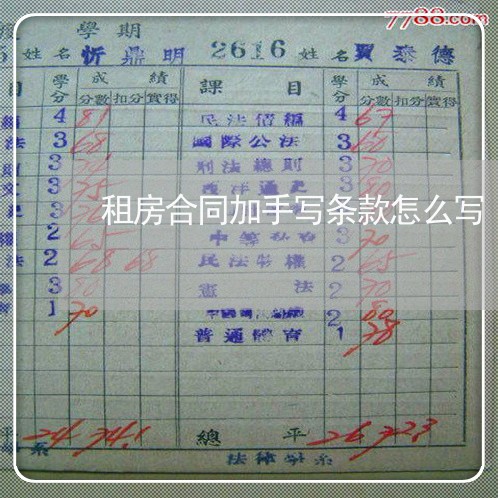 7788.com
學期
姓名 忻鼎明 2616 姓名 賈泰德
目 學分 成績 課目 學分 成績
分數 扣分 實得 分數 扣分 實得
4 81 民法債編 4 67
法 3 68 國際公法 3 60
3 刑法總則 3 70
3 75 西洋通史 3
租房合同加手写条款怎么写
2 65 3 70
法 2 68 68 民法物權 2 65
3 80 憲法 2 70
1 70 2 80
普通體育 1 78
平 24 74.1 總平 26 72.3
系 法律學系